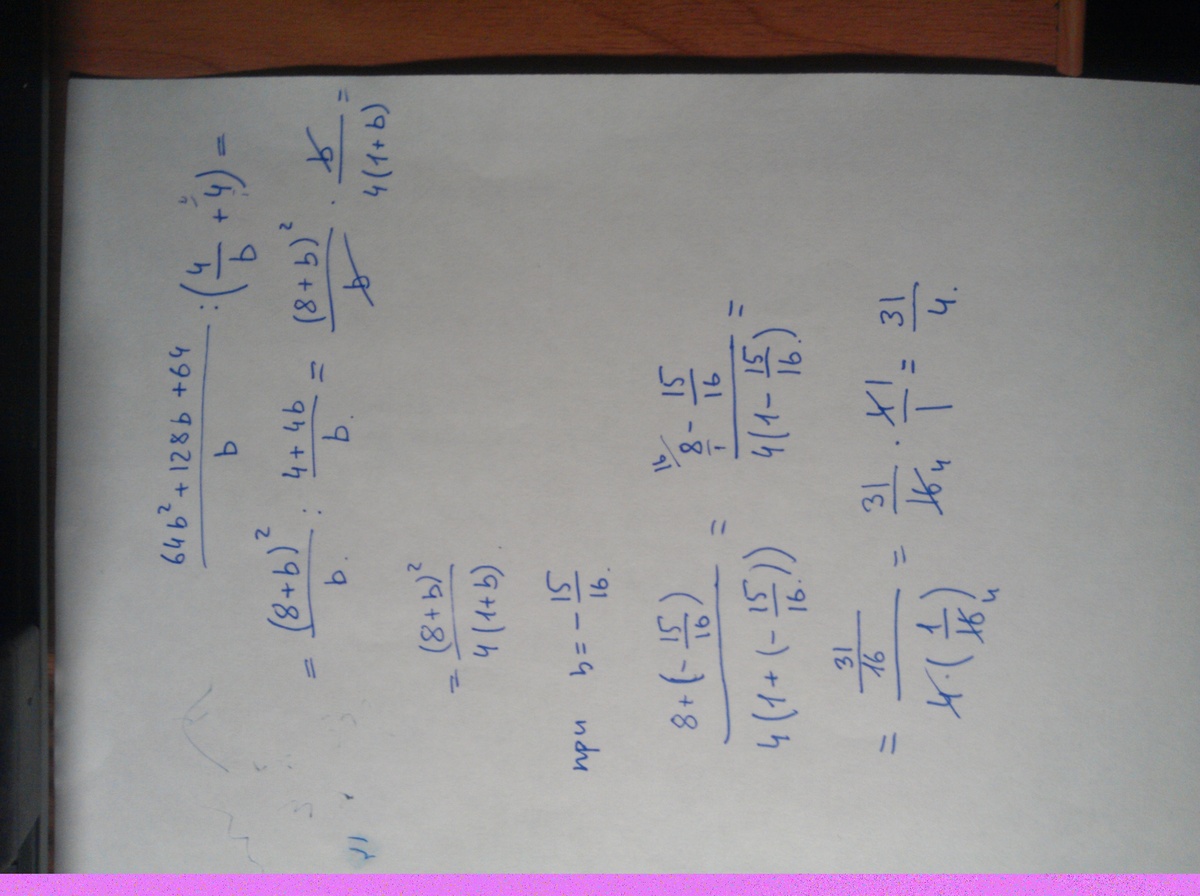 (64b² + 128b + 64)/b : (4/b + 4) =
= (8+b)²/b. : (4+4b)/b. = (8+b)²/b · b/4(1+b) =
= (8+b)²/4(1+b).
при b = - 15/16.
(8+(-15/16))/(4(1+(-15/16.))) = (8/1 - 15/16)/(4(1-15/16.)) =
= (31/16)/(4·(1/16)) = 31/16 · 4/1 = 31/4.